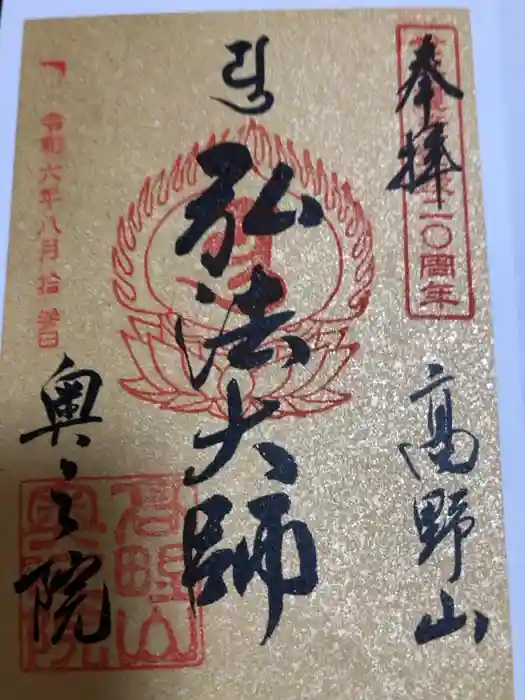 奉拝
二〇周年
高野山
弘法大師
奥之院
令和六年八月拾
高野山
奥院